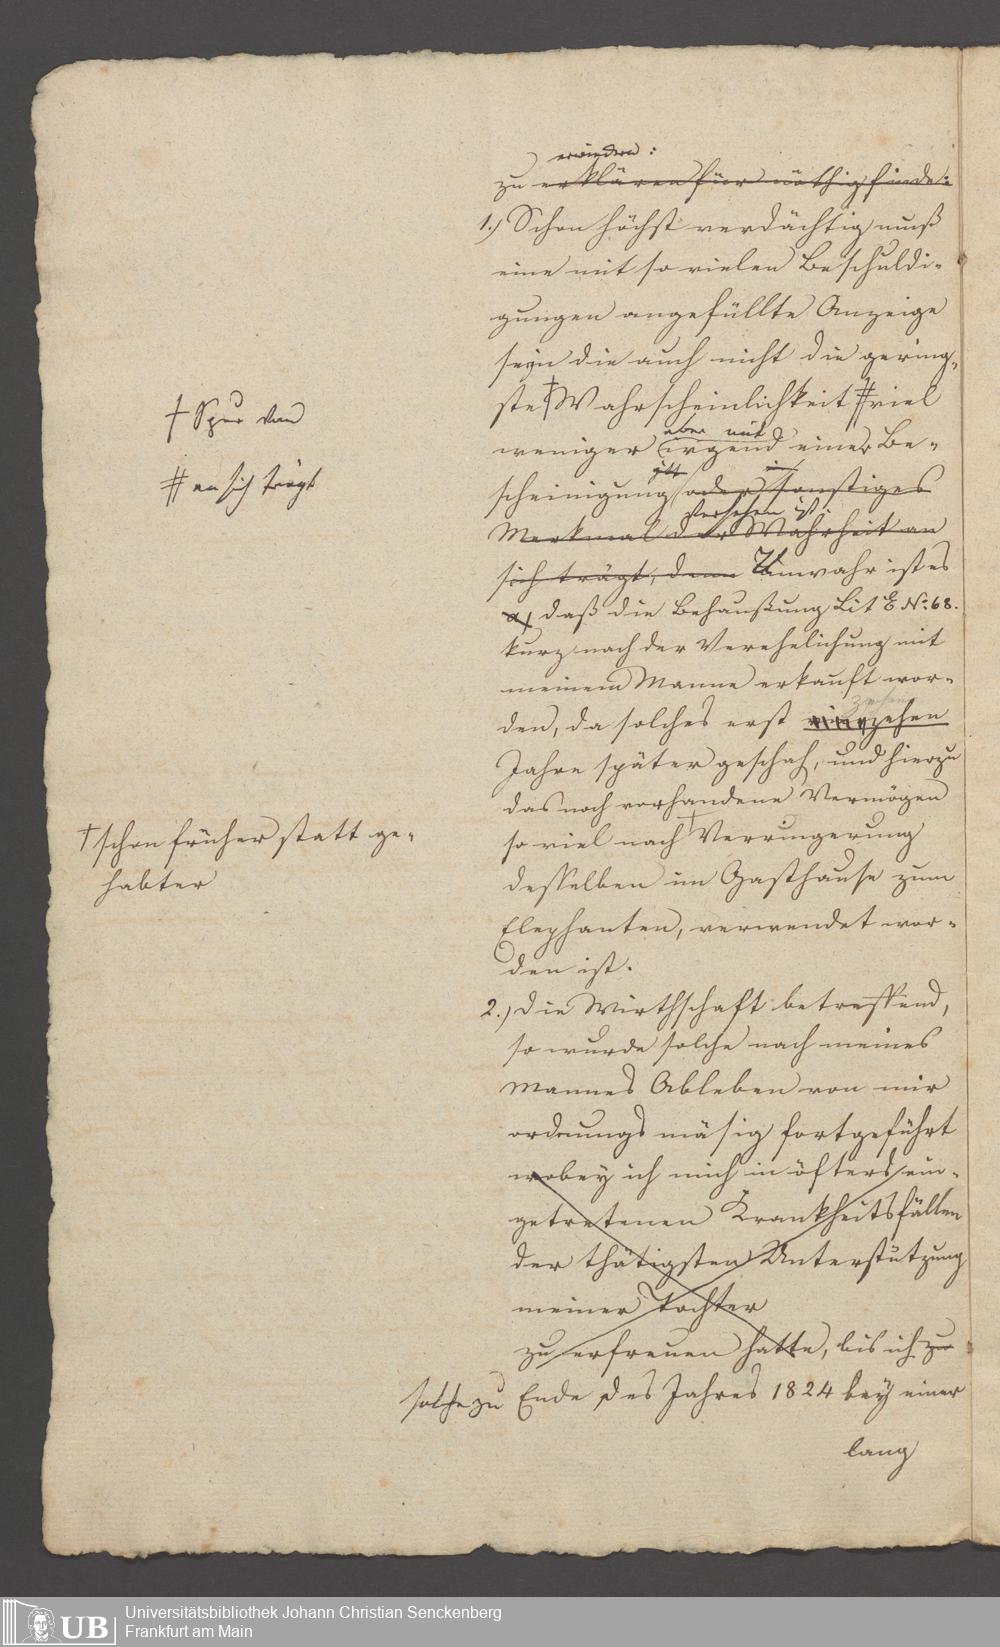 erwiedern:
zu erklären für nöthig finde:
1.) Schon höchst verdächtig muß
eine mit so vielen Beschuldi-
gungen angefüllte Anzeige
seyn die auch nicht die gering-
ste † Wahrscheinlichkeit # viel
† Spur von
aber mit
weniger irgend einer Be-
# an sich trägt
scheinigung oder sonstiges
versehen ist.
Merkmal der Wahrheit an
sich trägt, denn Unwahr ist es
a) daß die Behaußung Lit E No. 68.
kurz nach der Verehelichung mit
meinem Manne erkauft wor-
zehen
den, da solches erst vierzehen
Jahre später geschah, und hierzu
das noch vorhandene Vermögen
so viel nach † Verringerung
† schon früher statt ge-
habter
desselben im Gasthause zum
Elephanten, verwendet wor-
den ist.
2.) die Wirthschaft betreffend,
so wurde solche nach meines
Mannes Ableben von mir
ordnungs mäsig fortgeführt
wobey ich mich in öfters ein-
getretenen Krankheitsfällen
der thätigsten Unterstützung
meiner Tochter
zu erfreuen hatte, bis ich zu
solche zu Ende des Jahres 1824 bey einer
lang
Universitätsbibliothek Johann Christian Senckenberg
Frankfurt am Main
UB